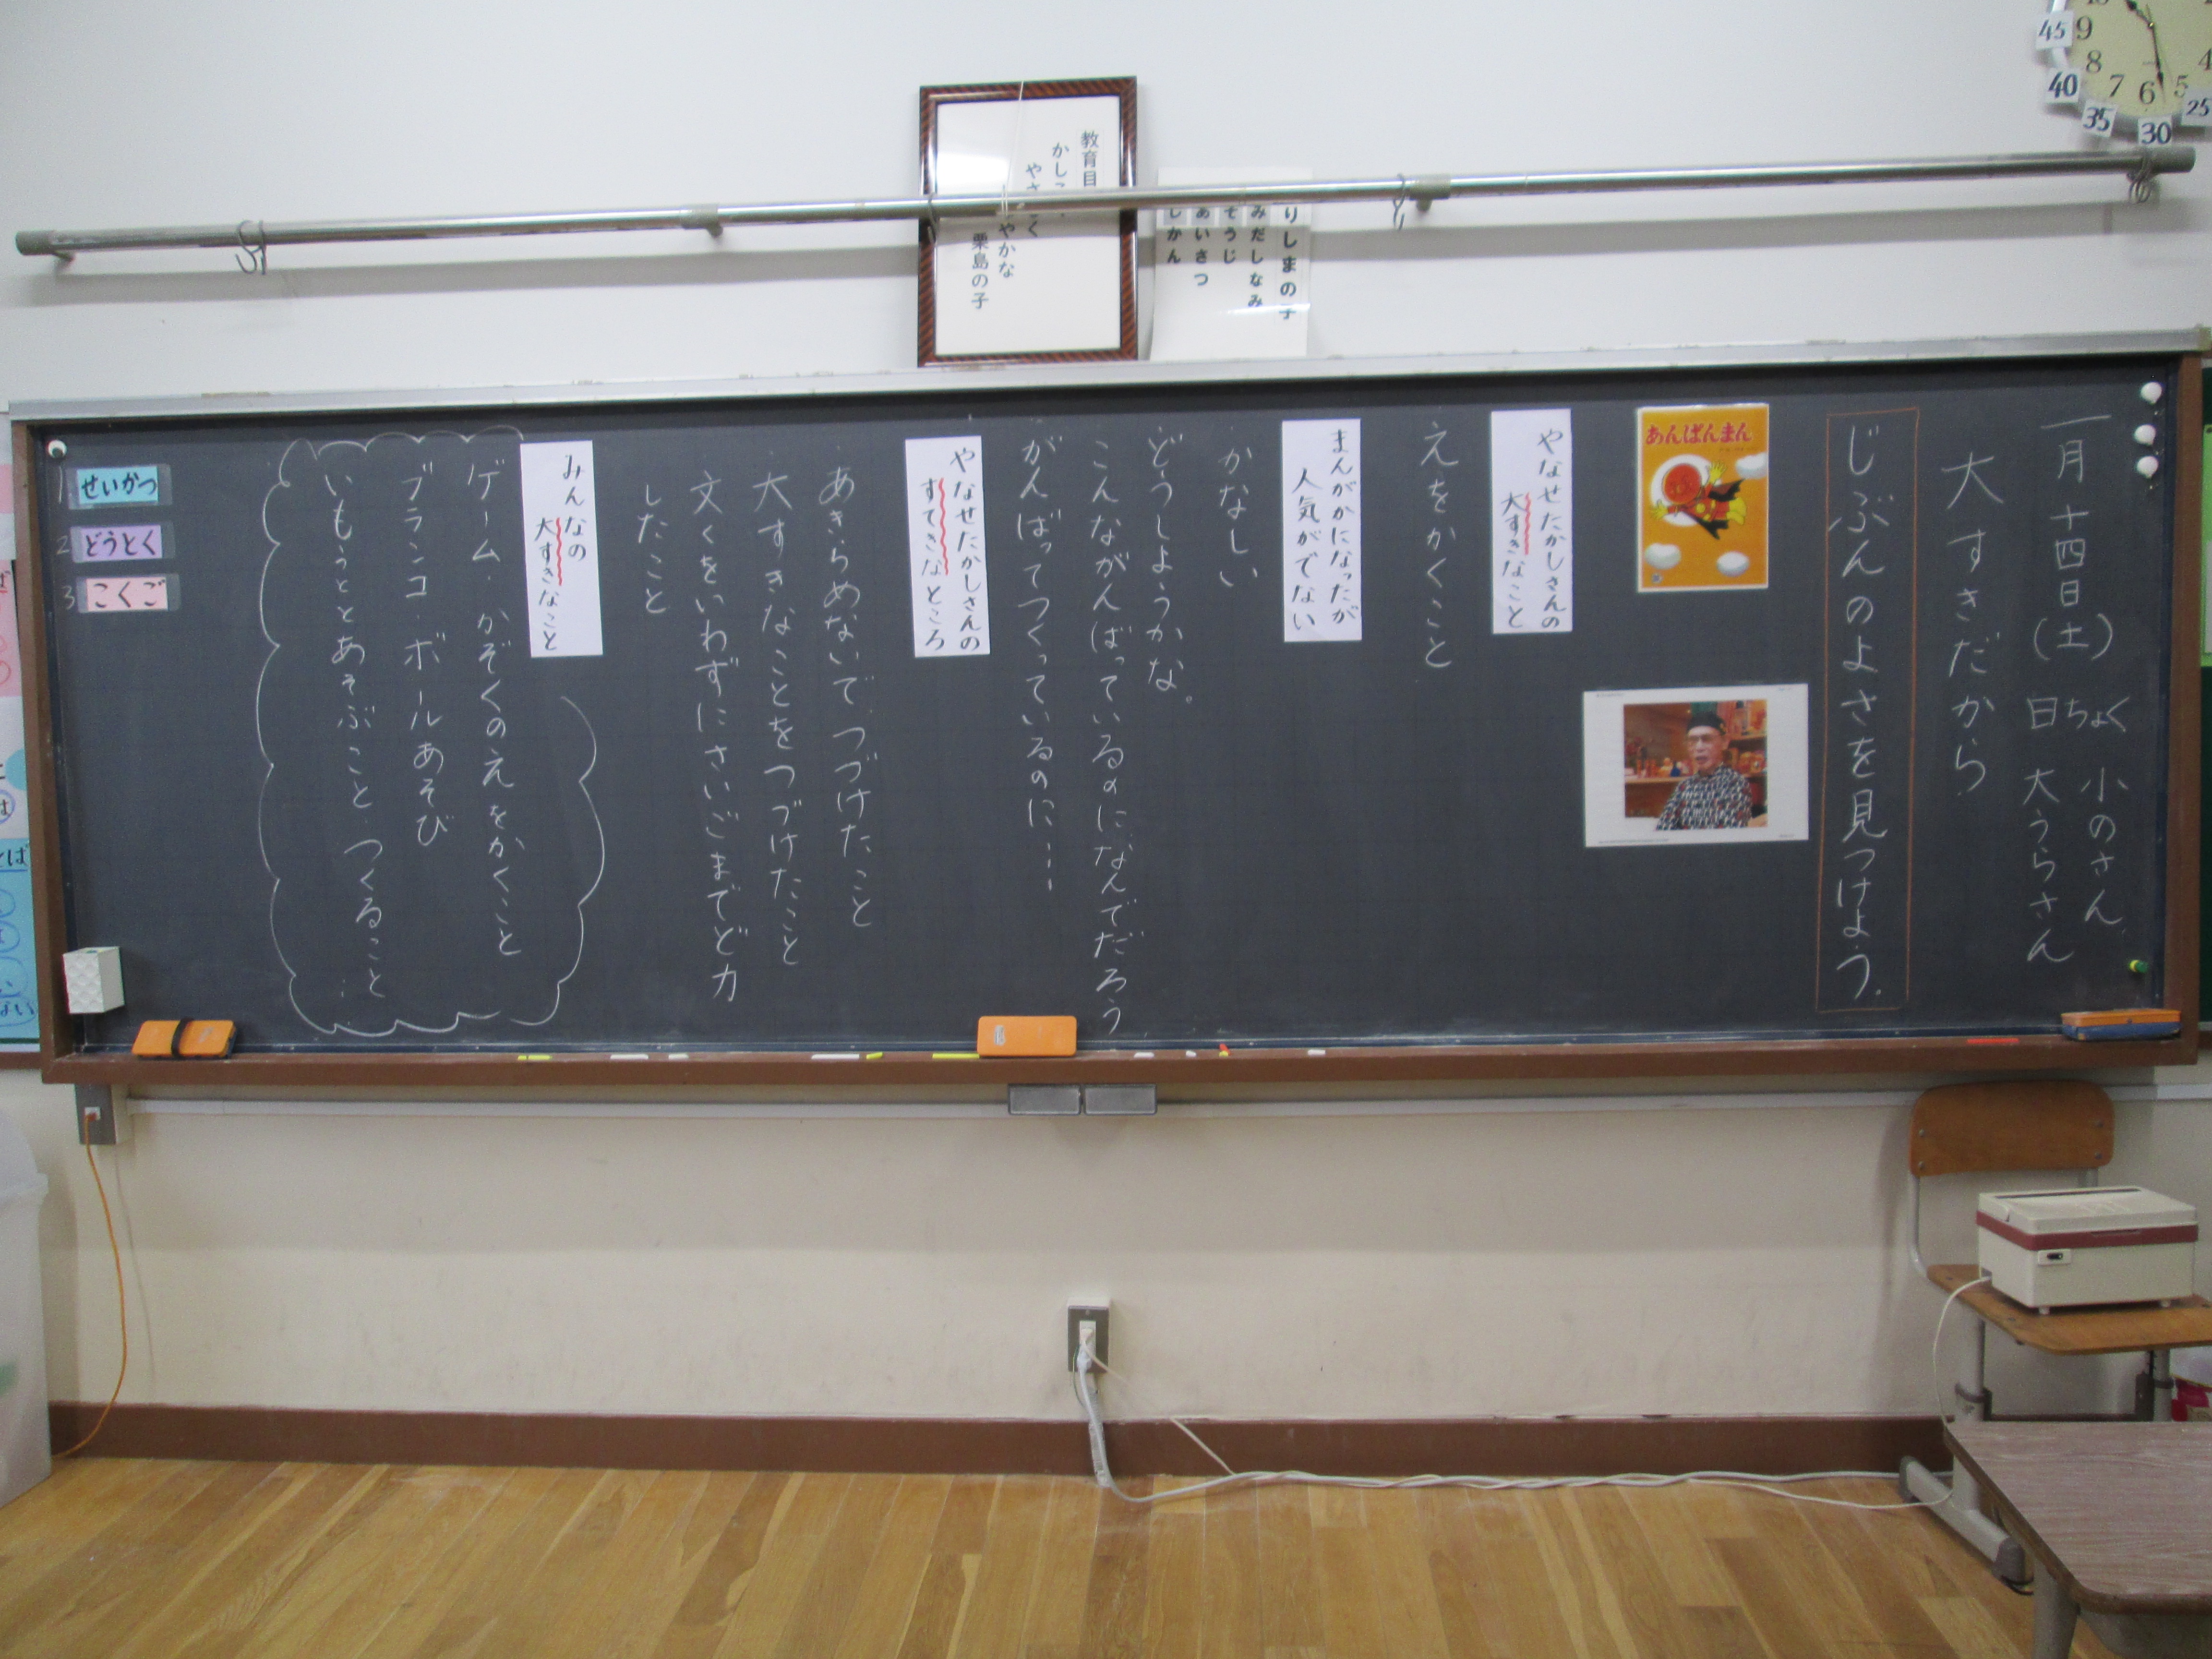 教育目
かしこ
やさ
く
やかな
栗島の子
りしまの子
みだしなみ
そうじ
あいさつ
じかん
45
40
35
30
25
9
8
7
6
5
4
一月十四日(土)
日ちょく
小のさん
大うらさん
大すきだから
じぶんのよさを見つけよう。
あんぱんまん
やなせたかしさんの
大すきなこと
えをかくこと
まんがかになったが
人気がでない
かなしい
どうしようかな。
こんながんばっているのになんでだろう
がんばってつくっているのに……
やなせたかしさんの
すてきなところ
・あきらめないで つづけたこと
・大すきなことをつづけたこと
文くをいわずにさいごまでど力
したこと
みんなの
大すきなこと
ゲーム・かぞくのえをかくこと
ブランコ・ボールあそび
いもうととあそぶこと・つくること
1 せいかつ
2 どうとく
3 こくご